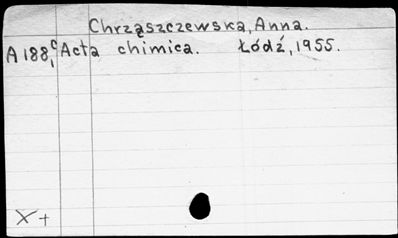 Chrząszczewska, Anna.
A 188,¹ᶜ Acta chimica. Łódź, 1955.
X +